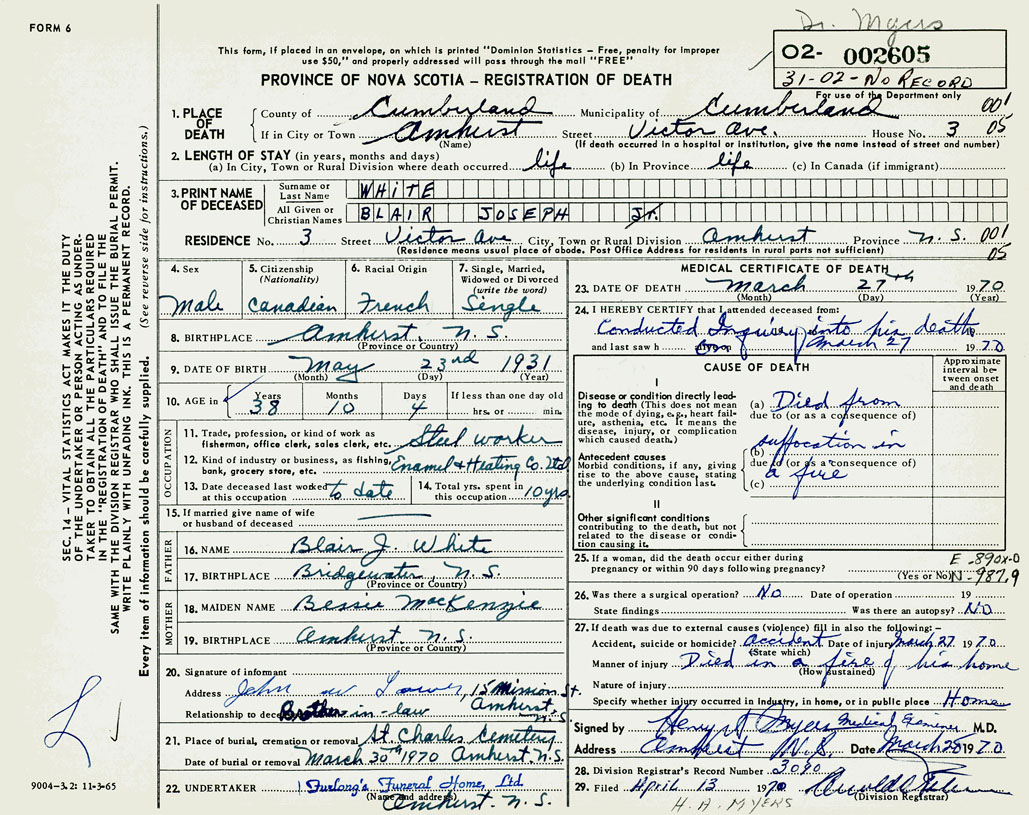 Dr. Myers
FORM 6
This form, if placed in an envelope, on which is printed "Dominion Statistics – Free, penalty for improper
use $50," and properly addressed will pass through the mail "FREE"
02- 002605
31-02-No RECORD
For use of the Department only
PROVINCE OF NOVA SCOTIA – REGISTRATION OF DEATH
1. PLACE OF DEATH
County of Cumberland Municipality of Cumberland 001
If in City or Town Amherst Street Victor Ave. House No. 3 05
(Name) (If death occurred in a hospital or institution, give the name instead of street and number)
2. LENGTH OF STAY (in years, months and days)
(a) In City, Town or Rural Division where death occurred life (b) In Province life (c) In Canada (if immigrant)
3. PRINT NAME OF DECEASED
Surname or Last Name WHITE
All Given or Christian Names BLAIR JOSEPH Jr.
RESIDENCE No. 3 Street Victor Ave City, Town or Rural Division Amherst Province N.S. 001
(Residence means usual place of abode. Post Office Address for residents in rural parts not sufficient) 05
4. Sex Male
5. Citizenship (Nationality) Canadian
6. Racial Origin French
7. Single, Married, Widowed or Divorced (write the word) Single
8. BIRTHPLACE Amherst, N.S.
(Province or Country)
9. DATE OF BIRTH May 23rd 1931
(Month) (Day) (Year)
10. AGE in Years 38 Months 10 Days 4 If less than one day old
hrs. or min.
OCCUPATION
11. Trade, profession, or kind of work as
fisherman, office clerk, sales clerk, etc. Steel worker
12. Kind of industry or business, as fishing,
bank, grocery store, etc. Enamel & Heating Co. Ltd
13. Date deceased last worked at this occupation to date
14. Total yrs. spent in this occupation 10 yrs
15. If married give name of wife
or husband of deceased
FATHER
16. NAME Blair J. White
17. BIRTHPLACE Bridgewater, N.S.
(Province or Country)
MOTHER
18. MAIDEN NAME Bessie MacKenzie
19. BIRTHPLACE Amherst N.S.
(Province or Country)
20. Signature of informant
Address John W 15 Mission St.
Amherst, N.S.
Relationship to deceased Brother-in-law
21. Place of burial, cremation or removal St. Charles Cemetery
Date of burial or removal March 30th 1970 Amherst, N.S.
22. UNDERTAKER Furlong's Funeral Home, Ltd
(Name and address) Amherst, N.S.
MEDICAL CERTIFICATE OF DEATH
23. DATE OF DEATH March 27th 1970
(Month) (Day) (Year)
24. I HEREBY CERTIFY that I attended deceased from:
Conducted Inquiry into his death 19
and last saw h alive on March 27 1970
CAUSE OF DEATH
Approximate interval between onset and death
I
Disease or condition directly leading to death (This does not mean
the mode of dying, e.g., heart failure, asthenia, etc. It means the
disease, injury, or complication
which caused death.)
(a) Died from
due to (or as a consequence of)
Antecedent causes
Morbid conditions, if any, giving
rise to the above cause, stating
the underlying condition last.
(b) suffocation in
due to (or as a consequence of)
(c) a fire
II
Other significant conditions
contributing to the death, but not
related to the disease or condition causing it.
25. If a woman, did the death occur either during
pregnancy or within 90 days following pregnancy? (Yes or No)
E-890x-0
N-987.9
26. Was there a surgical operation? No Date of operation 19
State findings Was there an autopsy? No
27. If death was due to external causes (violence) fill in also the following:–
Accident, suicide or homicide? accident Date of injury March 27 1970
(State which)
Manner of injury Died in a fire of his home
(How sustained)
Nature of injury
Specify whether injury occurred in Industry, in home, or in public place Home
Signed by Henry A Myers Medical Examiner M.D.
Address Amherst N.S. Date March 28 1970
28. Division Registrar's Record Number 3090
29. Filed April 13 1970
(Division Registrar)
H. A. MYERS
SEC. 14 – VITAL STATISTICS ACT MAKES IT THE DUTY
OF THE UNDERTAKER OR PERSON ACTING AS UNDER-
TAKER TO OBTAIN ALL THE PARTICULARS REQUIRED
IN THE "REGISTRATION OF DEATH" AND TO FILE THE
SAME WITH THE DIVISION REGISTRAR WHO SHALL ISSUE THE BURIAL PERMIT.
WRITE PLAINLY WITH UNFADING INK. THIS IS A PERMANENT RECORD.
Every item of information should be carefully supplied. (See reverse side for instructions.)
9004-3.2: 11-3-65